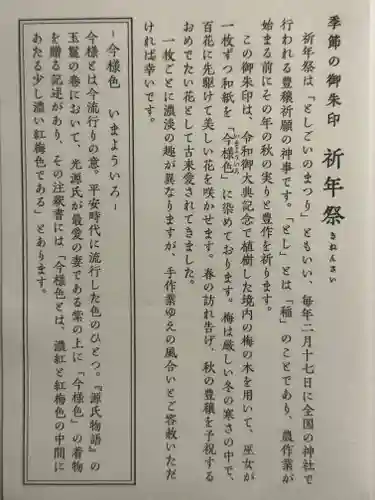 季節の御朱印 祈年祭
きねんさい
祈年祭は、「としごいのまつり」ともいい、毎年二月十七日に全国の神社で
行われる豊穣祈願の神事です。「とし」とは「稲」のことであり、農作業が
始まる前にその年の秋の実りと豊作を祈ります。
この御朱印は、令和御大典記念で植樹した境内の梅の木を用いて、巫女が
一枚ずつ和紙を「今様色」に染めております。梅は厳しい冬の寒さの中で、
いまよういろ
百花に先駆けて美しい花を咲かせます。春の訪れ告げ、秋の豊穣を予祝する
おめでたい花として古来愛されてきました。
一枚ごとに濃淡の趣が異なりますが、手作業ゆえの風合いとご容赦いただ
ければ幸いです。
−今様色 いまよういろ−
今様とは今流行りの意。平安時代に流行した色のひとつ。『源氏物語』の
玉鬘の巻において、光源氏が最愛の妻である紫の上に「今様色」の着物
を贈る記述があり、その注釈書には「今様色とは、濃紅と紅梅色の中間に
あたる少し濃い紅梅色である」とあります。